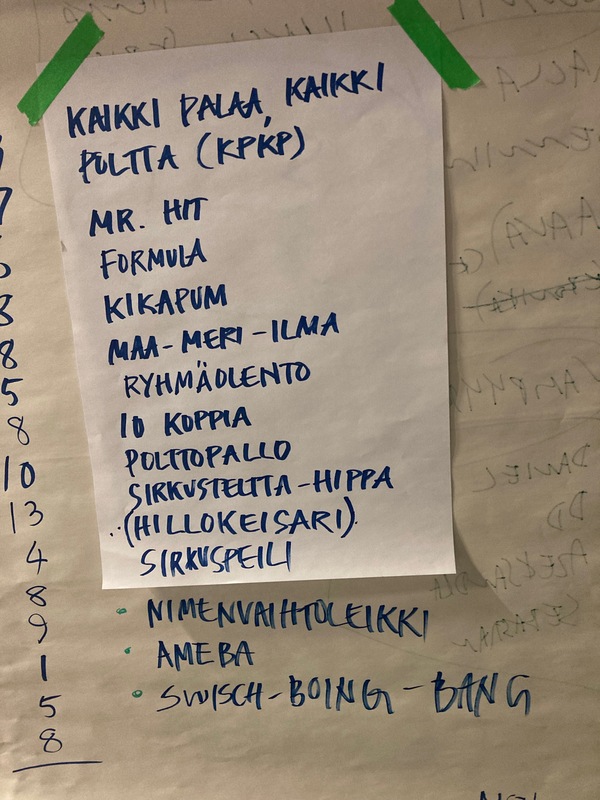 KAIKKI PALAA, KAIKKI
POLTTA (KPKP)
MR. HIT
FORMULA
KIKAPUM
MAA-MERI-ILMA
RYHMÄOLENTO
10 KOPPIA
POLTTOPALLO
SIRKUSTELTTA-HIPPA
(HILLOKEISARI)
SIRKUSPEILI
• NIMENVAIHTOLEIKKI
• AMEBA
• SWISCH-BOING-BANG
7
8
8
5
8
10
13
4
8
9
1
5
8
DANIEL
DD